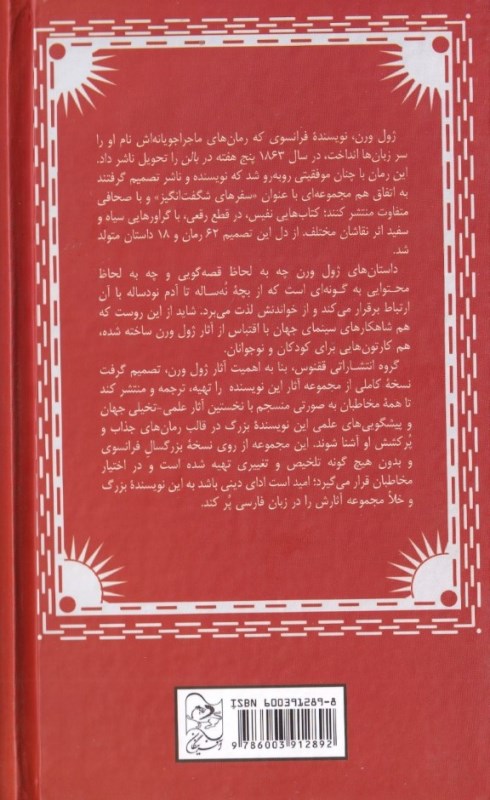 ژول ورن، نویسندهٔ فرانسوی که رمان‌های ماجراجویانه‌اش نام او را
سر زبان‌ها انداخت، در سال ۱۸۶۳ پنج هفته در بالن را تحویل ناشر داد.
این رمان با چنان موفقیتی روبه‌رو شد که نویسنده و ناشر تصمیم گرفتند
به اتفاق هم مجموعه‌ای با عنوان «سفرهای شگفت‌انگیز» و با صحافی
متفاوت منتشر کنند؛ کتاب‌هایی نفیس، در قطع رقعی، با گراورهایی سیاه و
سفید اثر نقاشان مختلف. از دل این تصمیم ۶۲ رمان و ۱۸ داستان متولد
شد.
داستان‌های ژول ورن چه به لحاظ قصه‌گویی و چه به لحاظ
محتوایی به گونه‌ای است که از بچهٔ نُه‌ساله تا آدم نودساله با آن
ارتباط برقرار می‌کند و از خواندنش لذت می‌برد. شاید از این روست که
هم شاهکارهای سینمای جهان با اقتباس از آثار ژول ورن ساخته شده،
هم کارتون‌هایی برای کودکان و نوجوانان.
گروه انتشاراتی ققنوس، بنا به اهمیت آثار ژول ورن، تصمیم گرفت
نسخهٔ کاملی از مجموعه آثار این نویسنده را تهیه، ترجمه و منتشر کند
تا همهٔ مخاطبان به صورتی منسجم با نخستین آثار علمی-تخیلی جهان
و پیشگویی‌های علمی این نویسندهٔ بزرگ در قالب رمان‌های جذاب و
پُرکشش او آشنا شوند. این مجموعه از روی نسخهٔ بزرگسال فرانسوی
و بدون هیچ گونه تلخیص و تغییری تهیه شده است و در اختیار
مخاطبان قرار می‌گیرد؛ امید است ادای دینی باشد به این نویسندهٔ بزرگ
و خلأ مجموعه آثارش را در زبان فارسی پُر کند.
ISBN 600391289-8
9 786003 912892